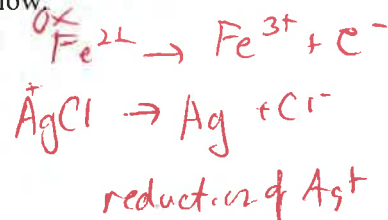 low.
ox
Fe²⁺ → Fe³⁺ + e⁻
⁺
AgCl → Ag + Cl⁻
reduction of Ag⁺